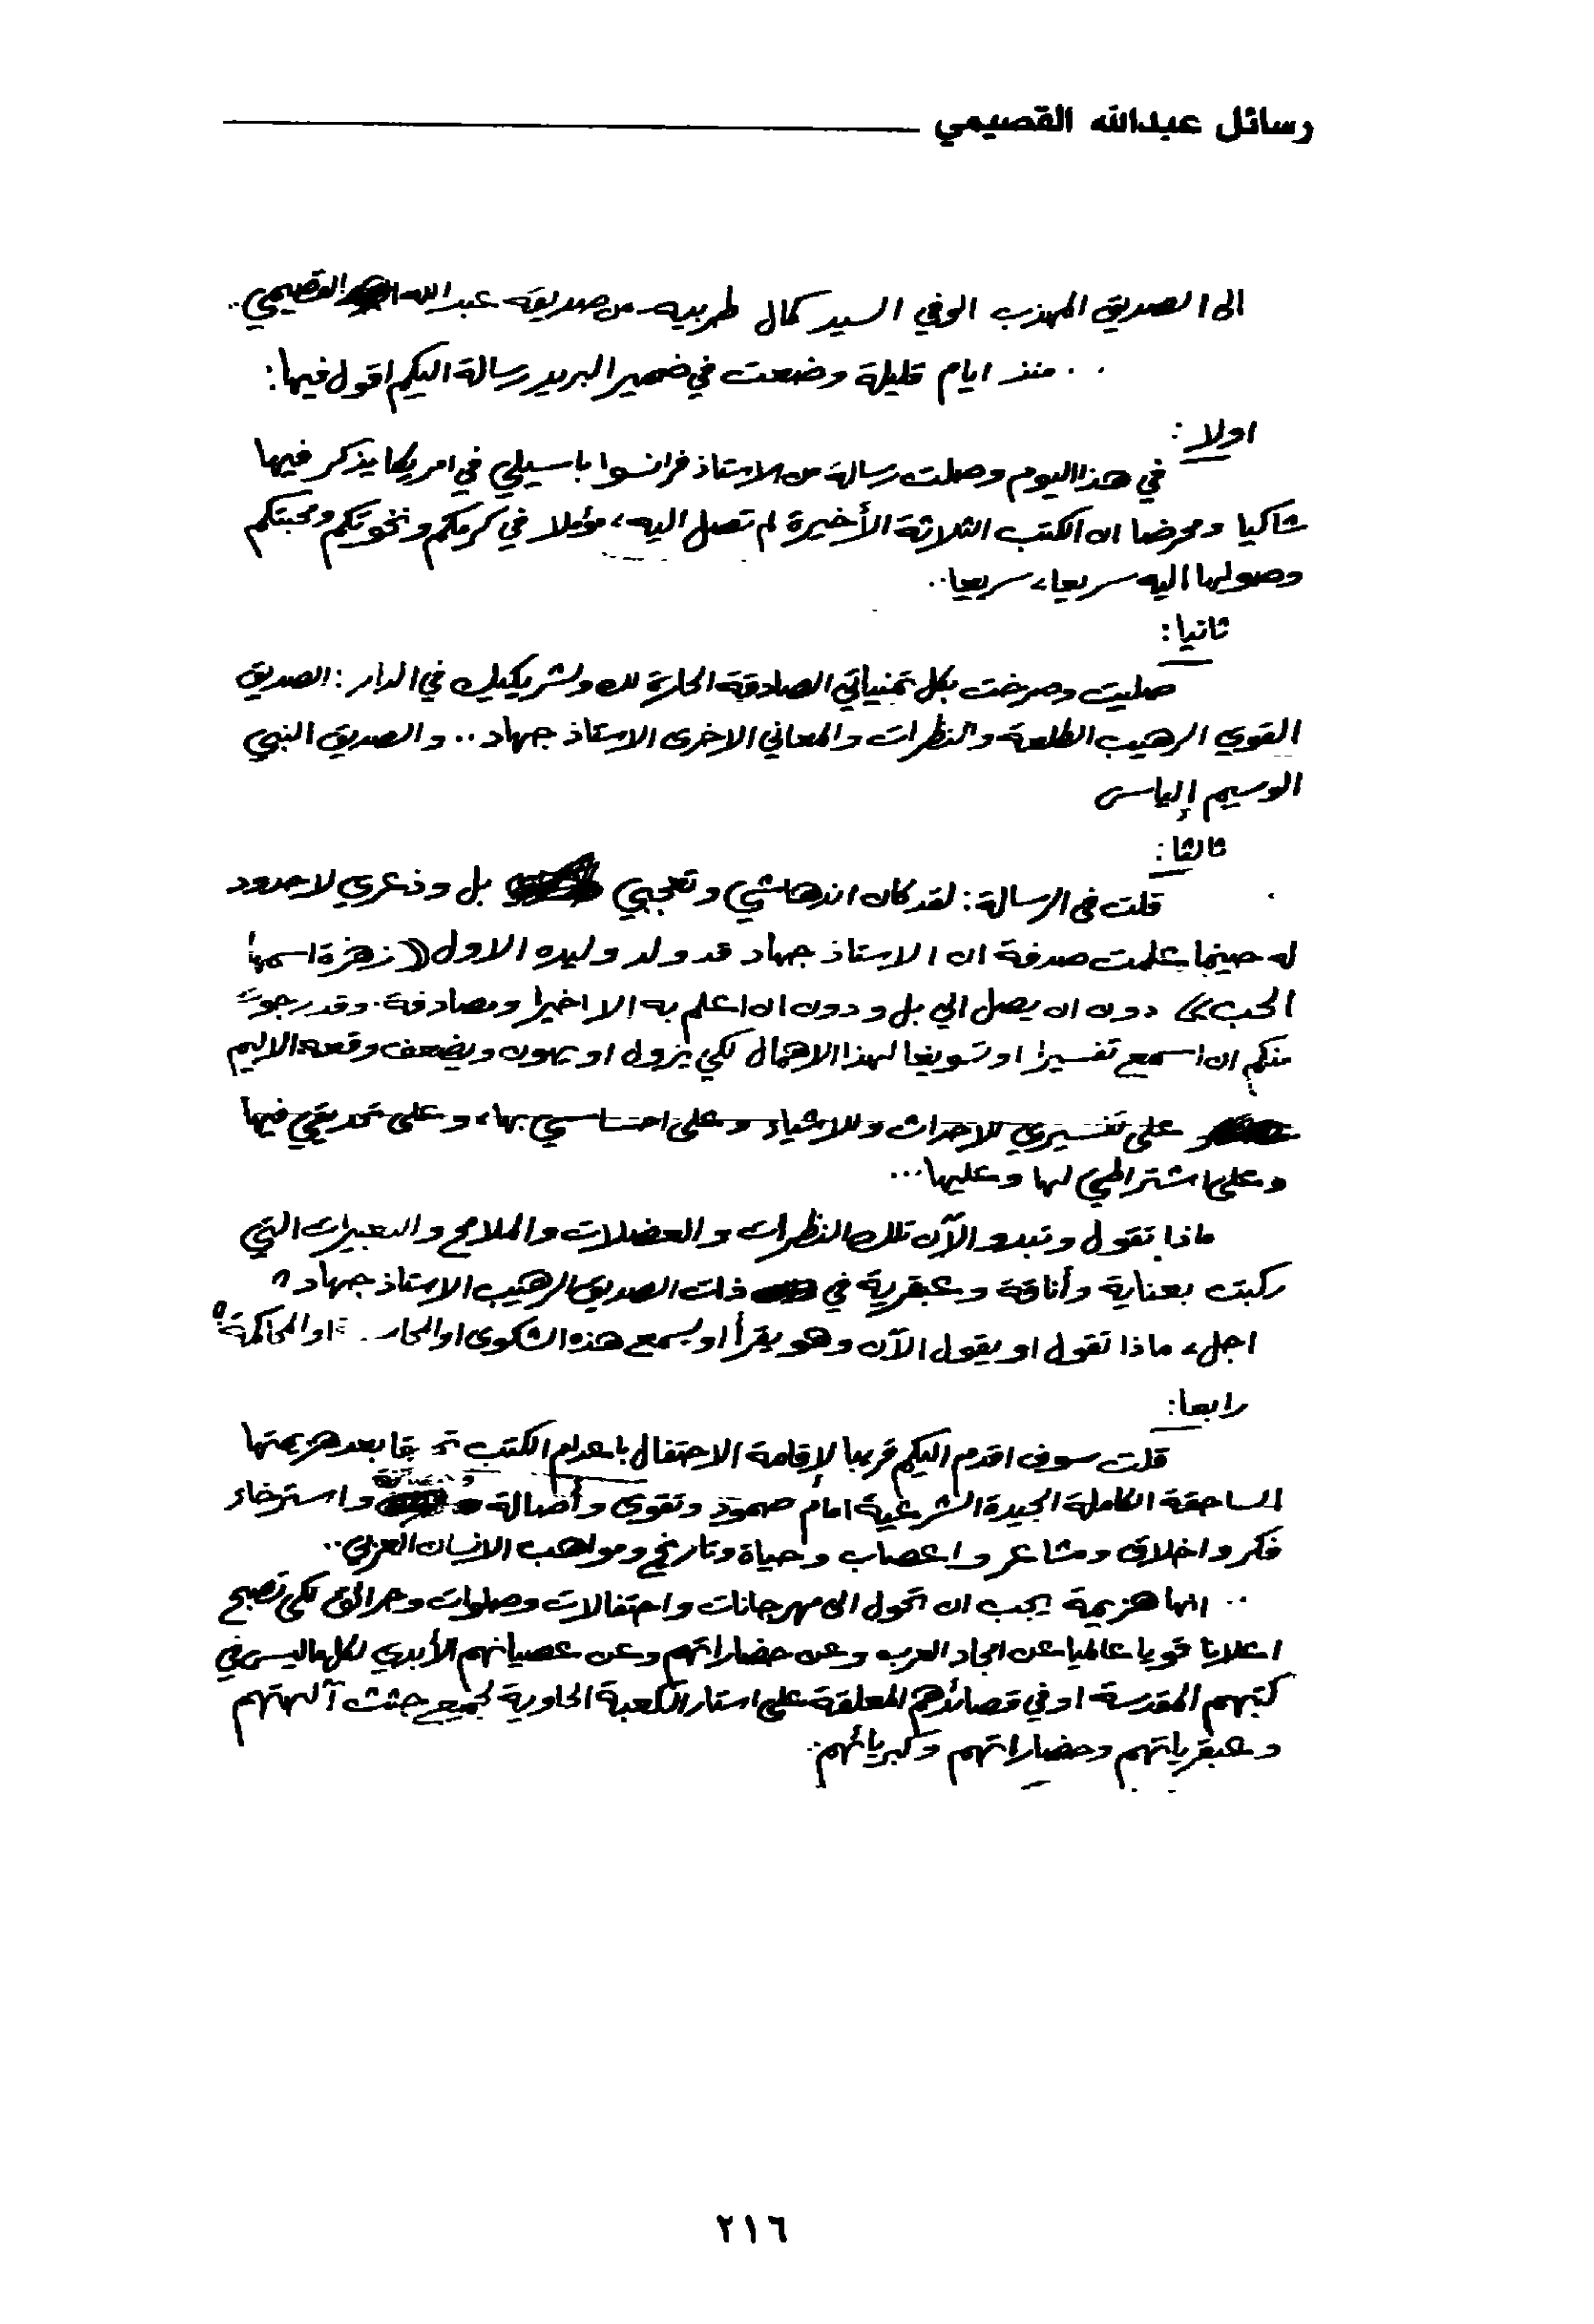 رسائل عبدالله القصيمي
الى الصديق المهذب الوفي السيد كمال طربيه من صديقه عبدالله القصيمي..
.. منذ ايام قليلة وضعت في ضمير البريد رسالة اليكم اقول فيها:
اولا:
في هذا اليوم وصلت رسالة من الاستاذ فرانسوا باسيلي في امريكا يذكر فيها
شاكيا ومحرضا ان الكتب الثلاثة الأخيرة لم تصل اليه، مؤملا في كرمكم ونخوتكم ومحبتكم
وصولها اليه سريعا، سريعا..
ثانيا:
صليت وصرخت بكل تمنياتي الصادقة الحارة لك ولشريكيك في الدار: الصديق
القوي الرهيب الطلعة والنظرات والمعاني الاخرى الاستاذ جهاد.. والصديق النبي
الوسيم إلياس
ثالثا:
قلت في الرسالة: لقد كان اندهاشي وتعجبي بل وذعري لا حدود
له حينما علمت صدفة ان الاستاذ جهاد قد ولد وليده الاول ((زهرة اسمها
الحب)) دون ان يصل الي بل ودون ان اعلم به الا اخيرا ومصادفة. وقد رجوت
منكم ان اسمع تفسيرا او تسويغا لهذا الاهمال لكي يزول او يهون ويضعف وقعه الاليم
على تفسيري للاحداث وللاشياء وعلى احساسي بها، وعلى تحديقي فيها
وعلى اشتراطي لها وعليها...
ماذا تقول وتبدو الآن تلك النظرات والعضلات والملامح والتعبيرات التي
ركبت بعناية وأناقة وعبقرية في ذات الصديق الرهيب الاستاذ جهاد؟
اجل، ماذا تقول او يقول الآن وهو يقرأ او يسمع هذه الشكوى او او المحاكمة؟
رابعا:
قلت سوف اقدم اليكم قريبا لإقامة الاحتفال باعدام الكتب بعد هزيمتها
الساحقة الكاملة المجيدة الشرعية امام صمود وتقوى وأصالة واسترخاء
فكر واخلاق ومشاعر واعصاب وحياة وتاريخ ومواهب الانسان العربي..
.. انها هزيمة يجب ان تحول الى مهرجانات واحتفالات وصلوات وحرائق لكي تصبح
اعلانا قويا عالميا عن امجاد العرب وعن حضاراتهم وعن عصيانهم الأبدي لكل ما ليس في
كتبهم المقدسة او في قصائدهم المعلقة على استار الكعبة الحاوية لجميع جثث آلهتهم
وعبقرياتهم وحضاراتهم وكبريائهم.
٢١٦